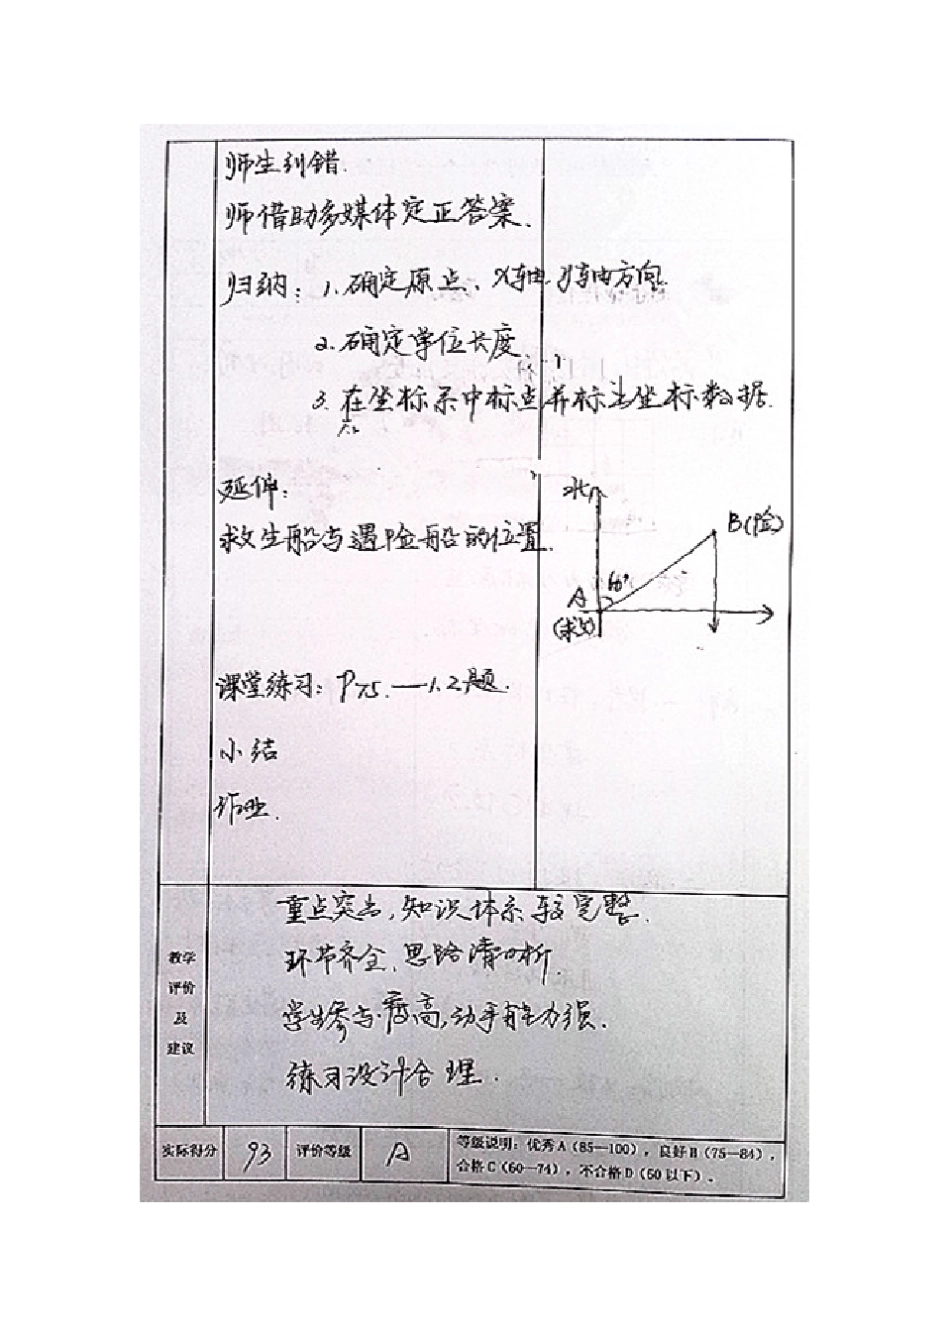 师生纠错.
师借助多媒体定正答案.
归纳：1.确定原点、x轴、y轴方向.
2.确定单位长度
3.在坐标系中标点并标注坐标数据.
延伸：
救生船与遇险船的位置.
北
B(险)
60°
A
(救)
课堂练习：P75.—1.2题.
小结
作业.
重点突出,知识体系较完整.
环节齐全、思路清晰
学生参与度高,动手能力强.
练习设计合理.
教学
评价
及
建议
实际得分 93 评价等级 A
等级说明：优秀A（85—100），良好B（75—84），
合格C（60—74），不合格D（60以下）。